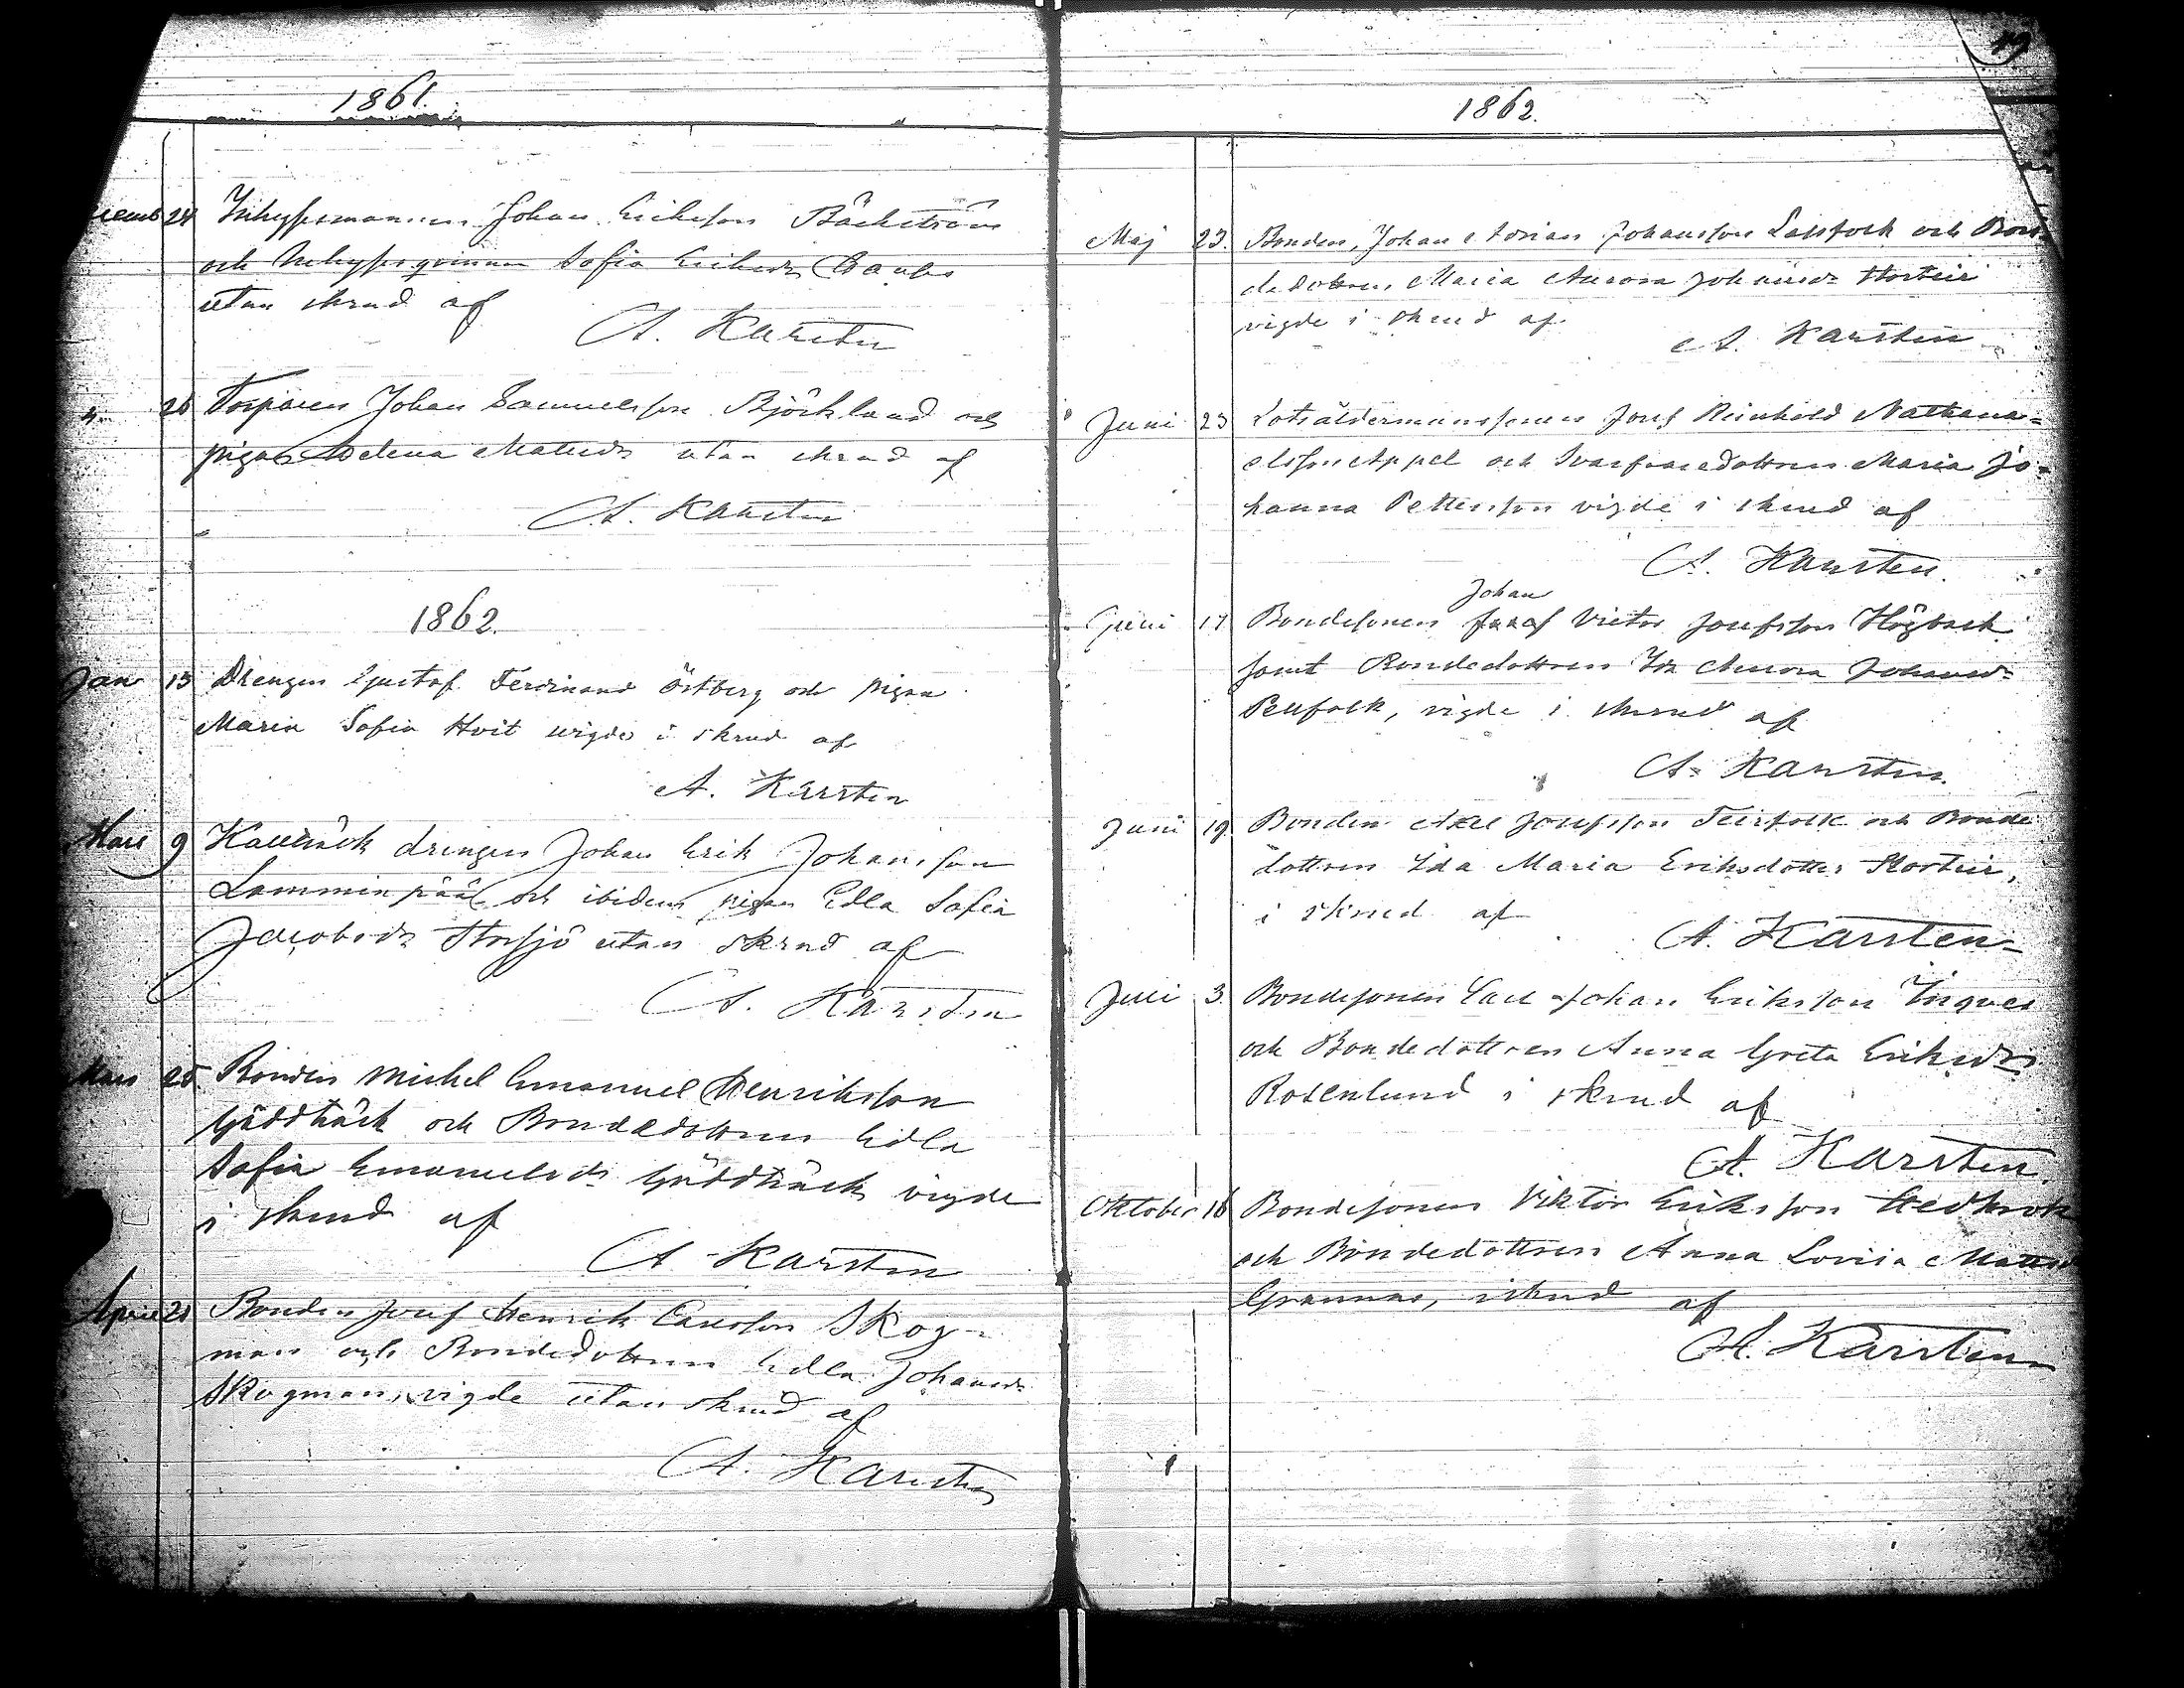 1861.
24 Inhysesmannen Johan Eriksson Bäckström
och Inhysesqvinnan Sofia Eriksdr
utan skrud af
A. Karsten
26 Torparen Johan Samuelsson Björklund och
pigan Helena Mattsdr utan skrud af
A. Karsten
1862.
Jan 15 Drengen Gustaf Ferdinand Östberg och pigan
Maria Sofia Hvit wigde i skrud af
A. Karsten
Mars 9 Kallbäck drengen Johan Erik Johansson
Lamminpää och ibidem pigan Edla Sofia
Jacobsdr Storsjö utan skrud af
A. Karsten
Mars 25 Bonden Michel Emanuel Henriksson
Gäddbäck och Bondedottren Edla
Sofia Emanuelsdr Gäddbäck vigde
i skrud af
A. Karsten
April 21 Bonden Josef Henrik Carlsson Skog-
man och Bondedottren Edla Johansdr
Skogman, vigde utan skrud af
A. Karsten
19
1862.
Maj 23. Bonden, Johan Adrian Johansson Lassfolk och Bon-
dedottren Maria Aurora Johansdr Storteir
vigde i skrud af
A. Karsten
Juni 23 Lotsåldermanssonen Josef Reinhold Nathana-
elsson Appel och Svarfvaredottren Maria Jo-
hanna Pettersson vigde i skrud af
A. Karsten.
Johan
Juni 17 Bondesonen Josef Victor Josefsson Högback
samt Bondedottren Ida Aurora Johansdr
Pellfolk, vigde i skrud af
A. Karsten.
Juni 19. Bonden Axel Josefsson Teirfolk och Bonde
dottren Ida Maria Eriksdotter Storteir,
i skrud af
A. Karsten
Juli 3. Bondesonen Carl Johan Eriksson Ingves
och Bondedottren Anna Greta Eriksdr
Rosenlund i skrud af
A. Karsten.
Oktober 16 Bondesonen Viktor Eriksson Hedkrok
och Bondedottren Anna Lovisa Mattsd
Grannas, i skrud af
A. Karsten